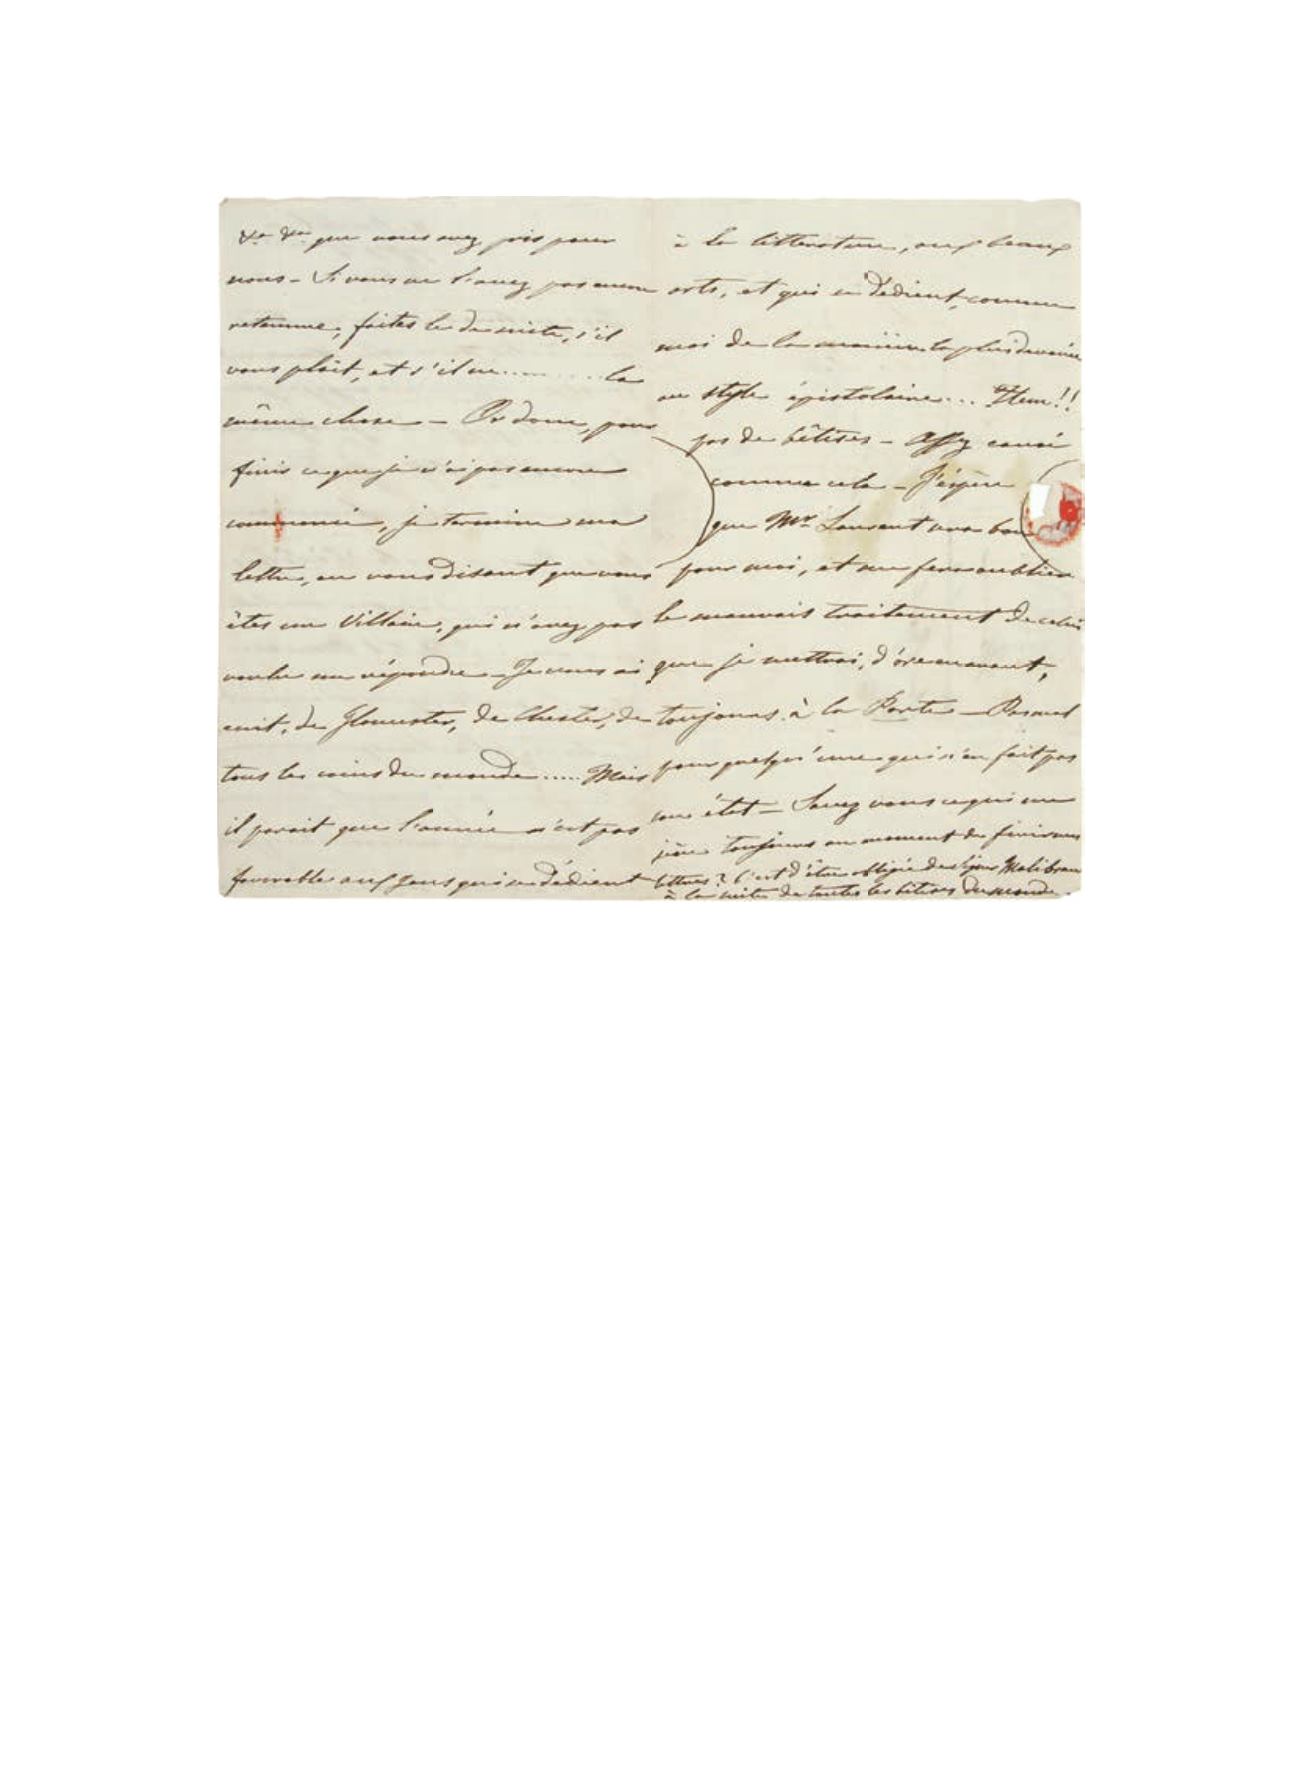 &a &a que vous avez pris pour
nous – Si vous ne l'avez pas encore
retenue, faites le de suite, s'il
vous plaît, et s'il ne .......... la
même chose – Or donc, pour
finir ce que je n'ai pas encore
commencé, je termine ma
lettre, en vous disant que vous
êtes un Villain, qui n'avez pas
voulu me répondre – Je vous ai
écrit, de Glocester, de Chester, de
tous les coins du monde ..... Mais
il parait que l'année n'est pas
favorable aux gens qui se dédient
à la litterature, aux beaux
arts, et qui se dédient, comme
moi de la manière la plus
au style épistolaire ... Hem!!
pas de bêtises – Assez causé
comme cela – J'éspère
que Mr Laurent sera bon
pour moi, et me fera oublier
le mauvais traitement de celui
que je mettrai, d'ore en avant,
toujours à la Porte – Pas mal
pour quelqu'une qui n'en fait pas
un état – Savez vous ce qui me
gène toujours au moment de finir mes
lettres? C'est d'être obligée de signer Malibran
à la suite de toutes les bétises du monde.